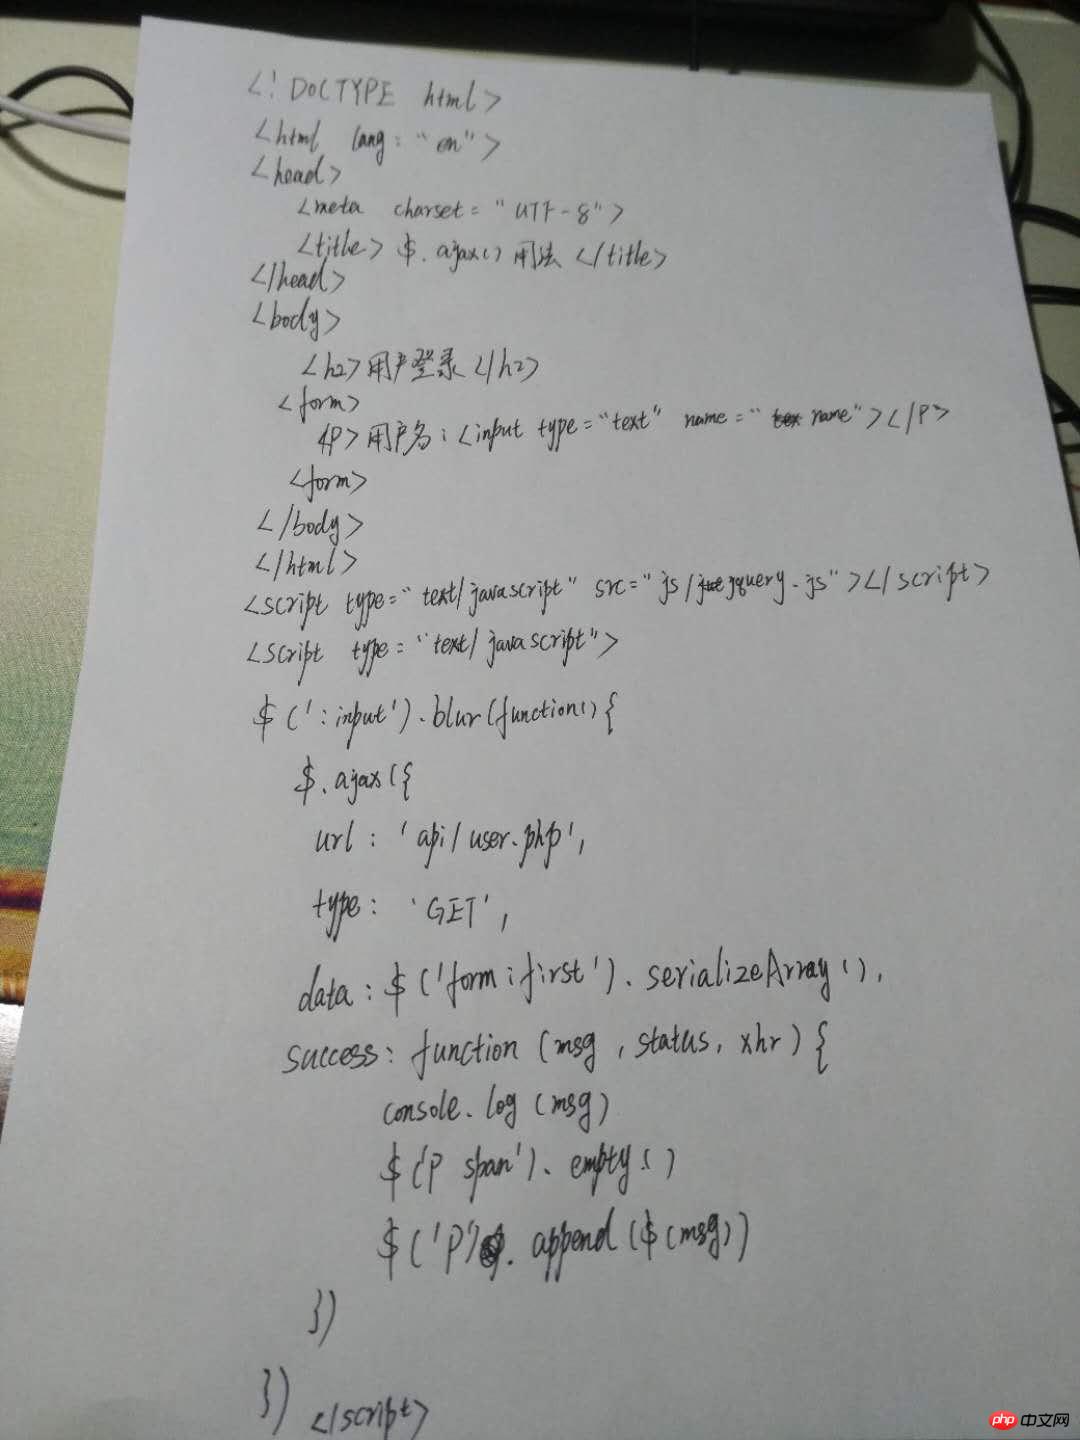 <!DOCTYPE html>
<html lang: "en">
<head>
<meta charset="UTF-8">
<title>$.ajax()用法</title>
</head>
<body>
<h2>用户登录</h2>
<form>
<p>用户名:<input type="text" name="name"></p>
<form>
</body>
</html>
<script type="text/javascript" src="js/jquery.js"></script>
<script type="text/javascript">
$(':input').blur(function(){
$.ajax({
url: 'api/user.php',
type: 'GET',
data: $('form:first').serializeArray(),
success: function (msg, status, xhr) {
console.log (msg)
$('p span').empty()
$('p').append($(msg))
})
}) </script>
php 中文网